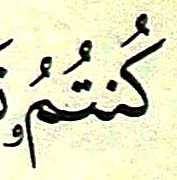 كُنتُمُۥ